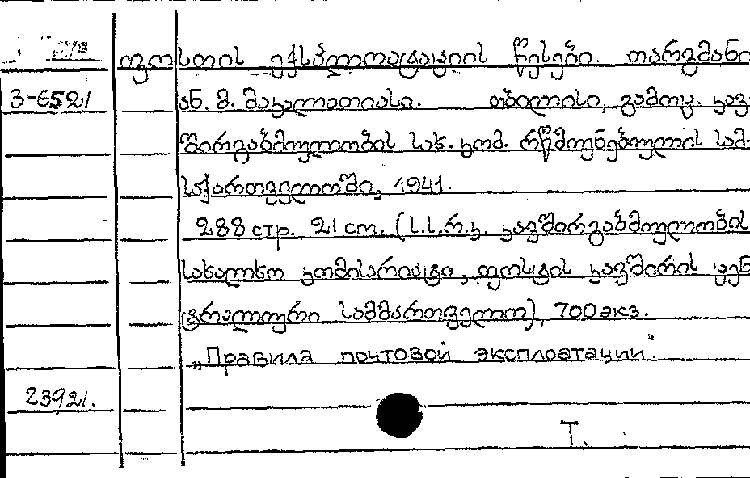 ფოსტის ექსპლოატაციის წესები. თარგმანი
3-6521 ან. მ. მახალათიასა. თბილისი, გამოც. კავ-
შირგაბმულობის სახ. კომ. რწმუნებულის სამ.
საქართველოში, 1941.
288 стр. 21 cm. (ს.ს.რ.კ. კავშირგაბმულობის
სახალხო კომისარიატი, ფოსტის კავშირის ცენ
ტრალური სამმართველო), 700 экз.
„Правила почтовой эксплоатации".
23921.
Т.